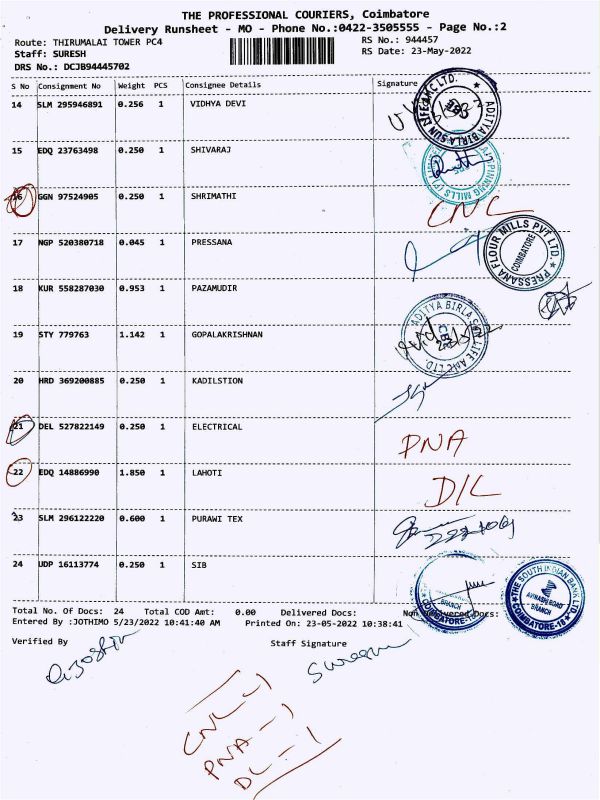 THE PROFESSIONAL COURIERS, Coimbatore
Delivery Runsheet - MO - Phone No.:0422-3505555 - Page No.:2
Route: THIRUMALAI TOWER PC4
RS No.: 944457
Staff: SURESH
RS Date: 23-May-2022
DRS No.: DCJB94445702
S No Consignment No Weight PCS Consignee Details Signature
14 SLM 295946891 0.256 1 VIDHYA DEVI
ADITYA BIRLA SUN LIFE AMC LTD.
15 EDQ 23763498 0.250 1 SHIVARAJ
16 GGN 97524905 0.250 1 SHRIMATHI CNL
17 NGP 520380718 0.045 1 PRESSANA
PRESSANA FLOUR MILLS PVT LTD.
COIMBATORE
18 KUR 558287030 0.953 1 PAZAMUDIR
19 STY 779763 1.142 1 GOPALAKRISHNAN
ADITYA BIRLA SUN LIFE AMC LTD.
CBE
20 HRD 369200885 0.250 1 KADILSTION
21 DEL 527822149 0.250 1 ELECTRICAL PNA
22 EDQ 14886990 1.850 1 LAHOTI D/L
23 SLM 296122220 0.600 1 PURAWI TEX
24 UDP 16113774 0.250 1 SIB
BRANCH
COIMBATORE-18
THE SOUTH INDIAN BANK LTD.
AVINASHI ROAD
BRANCH
COIMBATORE-18
Total No. Of Docs: 24 Total COD Amt: 0.00 Delivered Docs: Non Delivered Docs:
Entered By :JOTHIMO 5/23/2022 10:41:40 AM Printed On: 23-05-2022 10:38:41
Verified By Staff Signature
Suresh
CNL - 1
PNA - 1
DL - 1